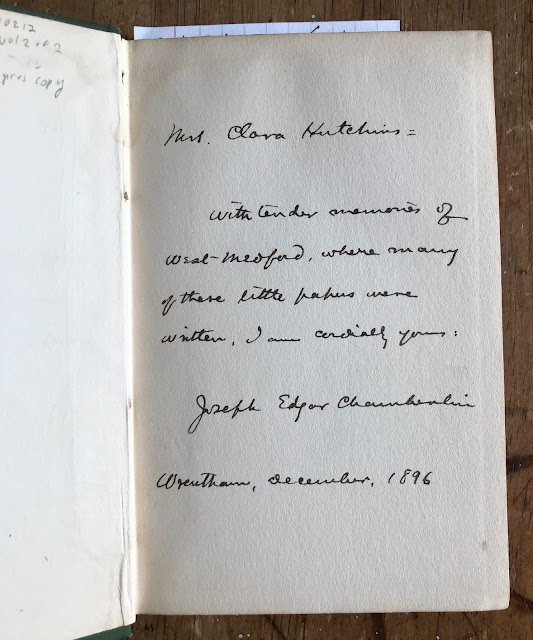 vol 2 of 2
pres copy
Mrs. Clara Hutchins =
With tender memories of
West-Medford, where many
of these little papers were
written, I am cordially yours:
Joseph Edgar Chamberlin
Wrentham, December, 1896